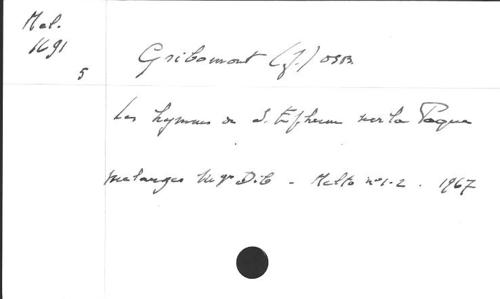 Mel.
1691
5
Gribomont (J.) OSB.
Les hymnes de S. Ephrem sur la Paque
melanges Mgr Dib - Melto n°1-2. 1967